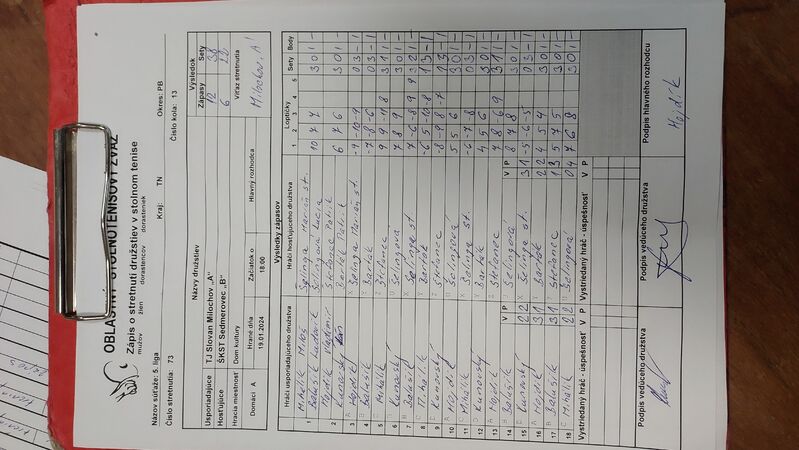 OBLASTNÝ STOLNOTENISOVÝ ZVÄZ
Zápis o stretnutí družstiev v stolnom tenise
mužov žien dorastencov dorasteniek
Názov súťaže: 5. liga Kraj: TN Okres: PB
Číslo stretnutia: 73 Číslo kola: 13
Názvy družstiev Výsledok
Zápasy Sety
Usporiadajúce TJ Slovan Milochov „A" 12 38
Hosťujúce ŠKST Sedmerovec „B" 6 22
Hracia miestnosť Dom kultury Víťaz stretnutia
Domáci A Hrané dňa Začiatok o Hlavný rozhodca Milochov „A"
19.01.2024 18:00
Výsledky zápasov
Hráči usporiadajúceho družstva Hráči hosťujúceho družstva Loptičky Sety Body
1 2 3 4 5
1 Mihalik Miloš Šelinga Marian st. 10 7 7 3 0 1 -
Balušík Ľudovít Šelingová Lucia
2 Hojdík Vladimír Štefanec Patrik 6 7 6 3 0 1 -
Kunovský Ján Bartók Patrik
3 A Hojdík X Šelinga Marian st. -9 -10 -9 0 3 - 1
4 B Balušík Y Bartók -7 -8 -6 0 3 - 1
5 C Mihalík Z Štefanec 9 9 -9 8 3 1 1 -
6 D Kunovský U Šelingová 7 8 9 3 0 1 -
7 B Balušík X Šelinga st. 7 -6 -8 9 9 3 2 1 -
8 C Mihalík Y Bartók -6 5 -10 -8 1 3 - 1
9 D Kunovský Z Štefanec -8 -9 8 -7 1 3 - 1
10 A Hojdík U Šelingová 5 5 6 3 0 1 -
11 C Mihalík X Šelinga st. -6 -7 -8 0 3 - 1
12 D Kunovský Y Bartók 4 5 6 3 0 1 -
13 A Hojdík Z Štefanec 7 8 -6 9 3 1 1 -
14 B Balušík V P U Šelingová V P 8 7 8 3 0 1 -
15 D Kunovský 2 2 X Šelinga st. 3 1 -5 -6 -5 0 3 - 1
16 A Hojdík 3 1 Y Bartók 2 2 4 5 4 3 0 1 -
17 B Balušík 3 1 Z Štefanec 1 3 5 7 5 3 0 1 -
18 C Mihalík 2 2 U Šelingová 0 4 7 6 8 3 0 1 -
Vystriedaný hráč - úspešnosť V P Vystriedaný hráč - úspešnosť V P
Podpis vedúceho družstva Podpis vedúceho družstva Podpis hlavného rozhodcu
Hojdík